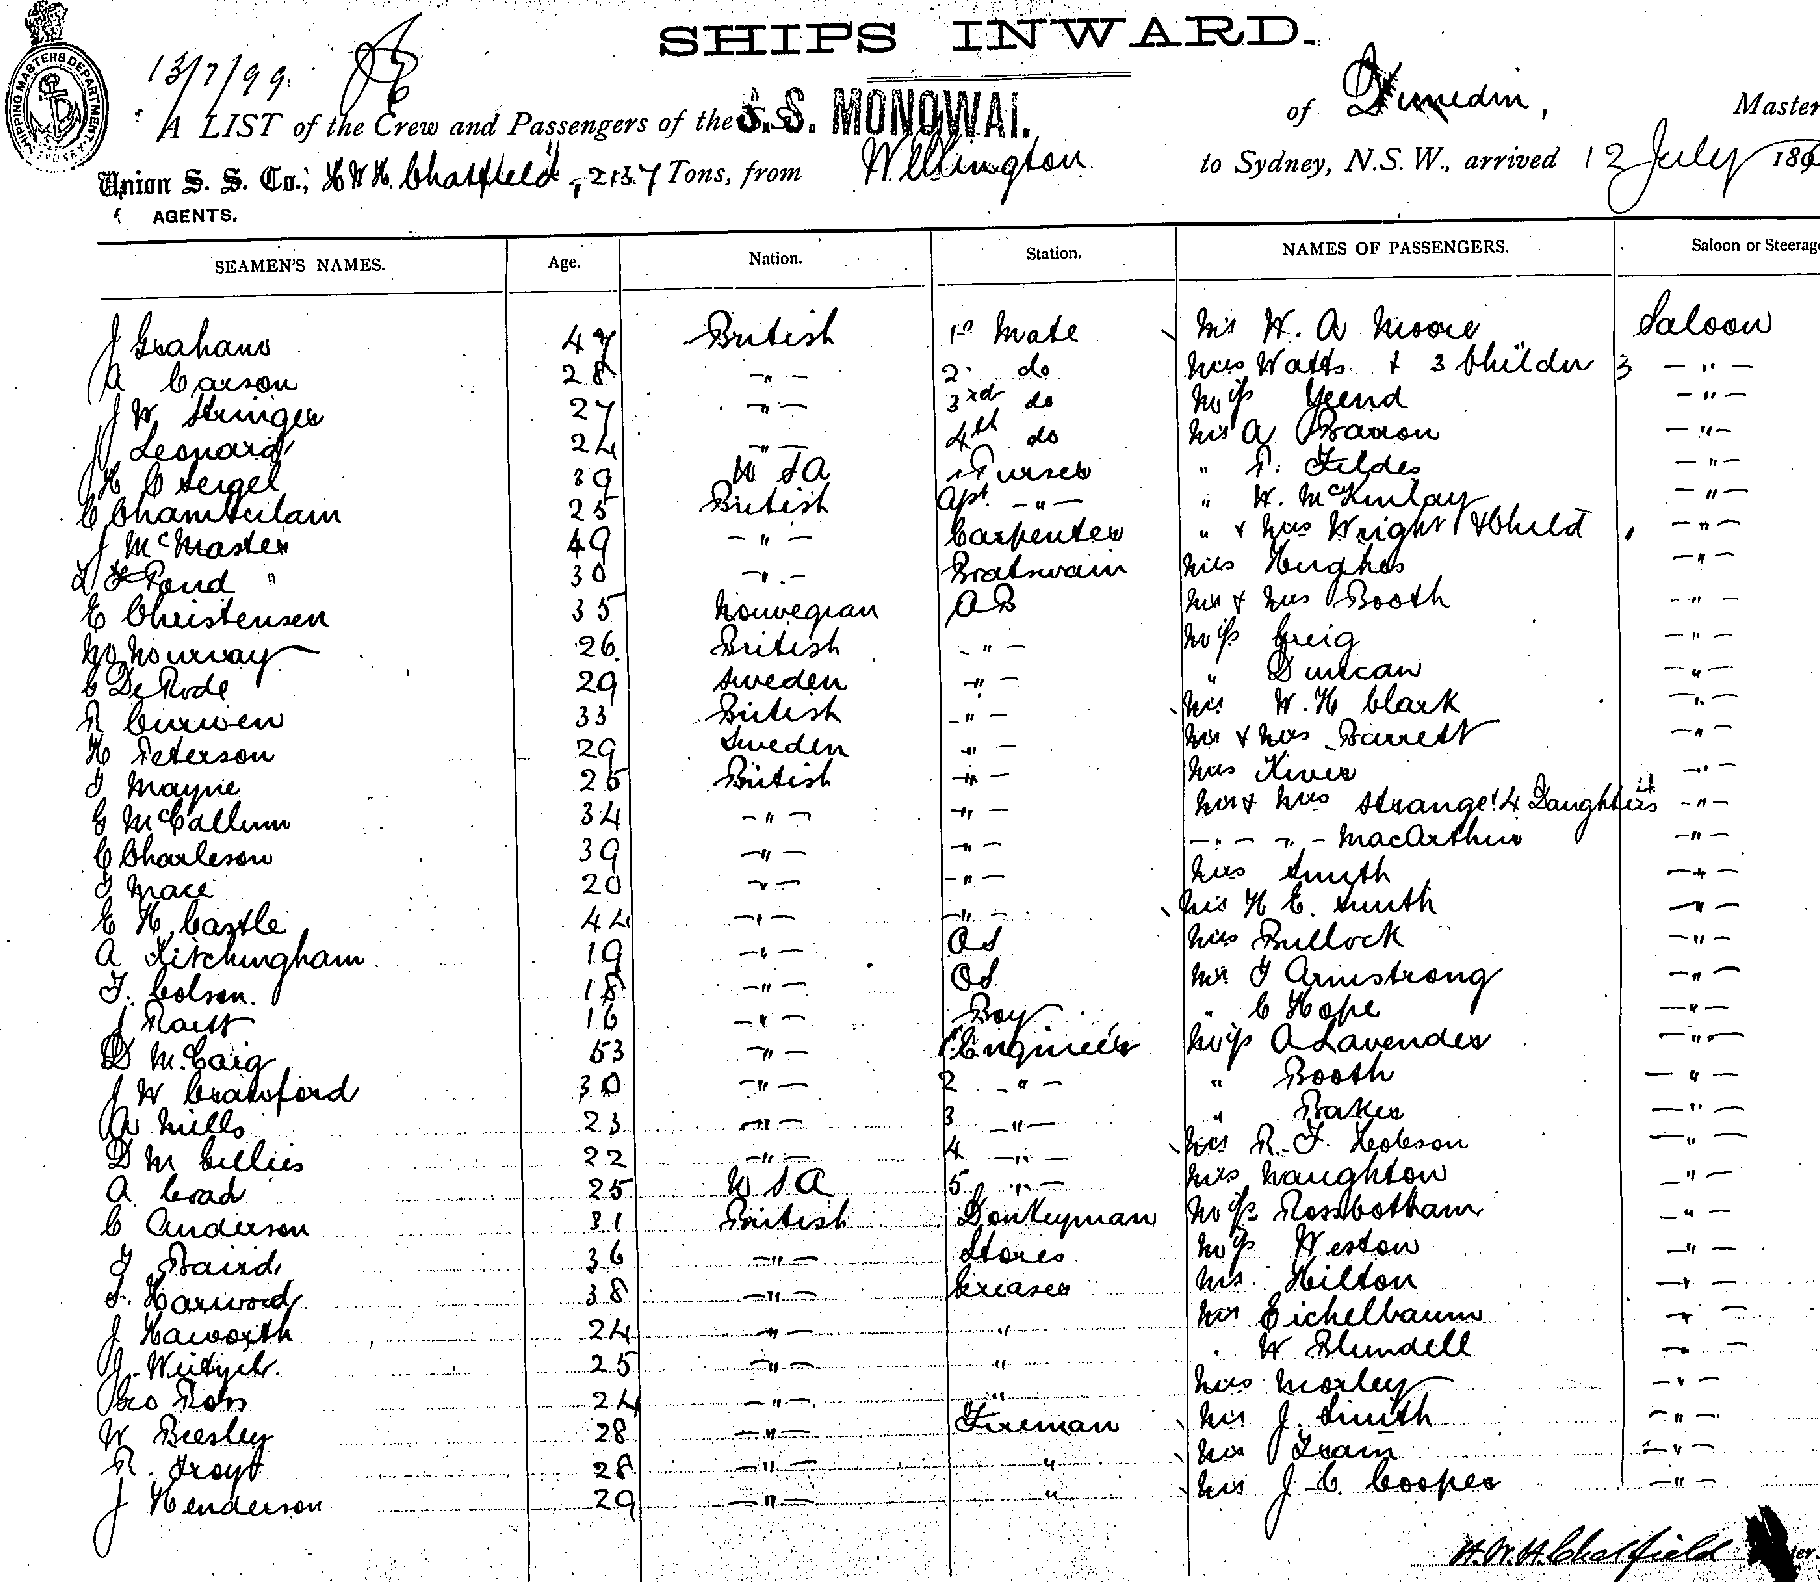 SHIPS INWARD.
SHIPPING MASTERS DEPARTMENT
13/7/99.
A LIST of the Crew and Passengers of the S.S. MONOWAI. of Dunedin, Master
Union S. S. Co., H W H Chatfield, 2137 Tons, from Wellington to Sydney, N.S.W., arrived 12 July 189
AGENTS.
SEAMEN'S NAMES. Age. Nation. Station. NAMES OF PASSENGERS. Saloon or Steerage
J Graham 47 British 1st Mate Mr W. A Moore Saloon
A Carson 28 - " - 2 do Mrs Watts & 3 Childn 3 - " -
J W Stringer 27 - " - 3rd do Miss Yeend - " -
J Leonard 24 - " - 4th do Mr A Barron - " -
H C Seigel 39 U S A Purser " P. Fildes - " -
C Chamberlain 25 British Apt. - " - " W. McKinlay - " -
J McMaster 49 - " - Carpenter " & Mrs Wright & Child - " -
Pond " 30 - " - Boatswain Mrs Hughes - " -
E Christensen 35 Norwegian AB Mr & Mrs Booth - " -
Norway 26 British - " - Miss Greig - " -
C De Rode 29 Sweden - " - " Duncan - " -
R Curwen 33 British - " - Mr W. H Clark - " -
H Peterson 29 Sweden - " - Mr & Mrs Barrett - " -
J Mayne 25 British - " - Mrs - " -
G McCallum 34 - " - - " - Mr & Mrs Strange & 4 Daughters - " -
C Charleson 39 - " - - " - - " - " - MacArthur - " -
J Mace 20 - " - - " - Mrs Smyth - " -
E H Castle 44 - " - - " - Mr H E. Smith - " -
A Kitchingham 19 - " - OS Mrs Bullock - " -
F. Colson. 18 - " - OS Mr J Armstrong - " -
J Raitt 16 - " - Boy " C Hope - " -
D McCaig 53 - " - 1 Engineer Miss A Lavender - " -
J W Crawford 30 - " - 2 - " - " Booth - " -
A Mills 23 - " - 3 - " - " Baker - " -
D M Gillies 22 - " - 4 - " - Mr R. F. Hobson - " -
A Coad 25 U S A 5 - " - Mrs Naughton - " -
C Anderson 31 British Donkeyman Miss Rossbotham - " -
J Baird 36 - " - Stores Miss Weston - " -
F. Harwood 38 - " - Greaser Mr Hilton - " -
J Haworth 24 - " - " Mr Eichelbaum - " -
J. 25 - " - " " W Blundell - " -
Geo Ross 24 - " - " Mrs Morley - " -
W Beesley 28 - " - Fireman Mr J. Smith - " -
R. Troyt 28 - " - " Mr Train - " -
J Henderson 29 - " - " Mr J. C Cooper - " -
H.W.H. Chatfield